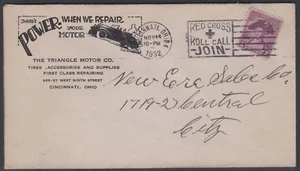 THERE'S
POWER WHEN WE REPAIR
YOUR
MOTOR
THE TRIANGLE MOTOR CO.
TIRES ..ACCESSORIES AND SUPPLIES
FIRST CLASS REPAIRING
WEST NINTH STREET
CINCINNATI, OHIO
CINCINNATI, OHIO
NOV 14
10-PM
1932
RED CROSS
ROLL CALL
JOIN
New Era Sales Co.
1719-21 Central
City